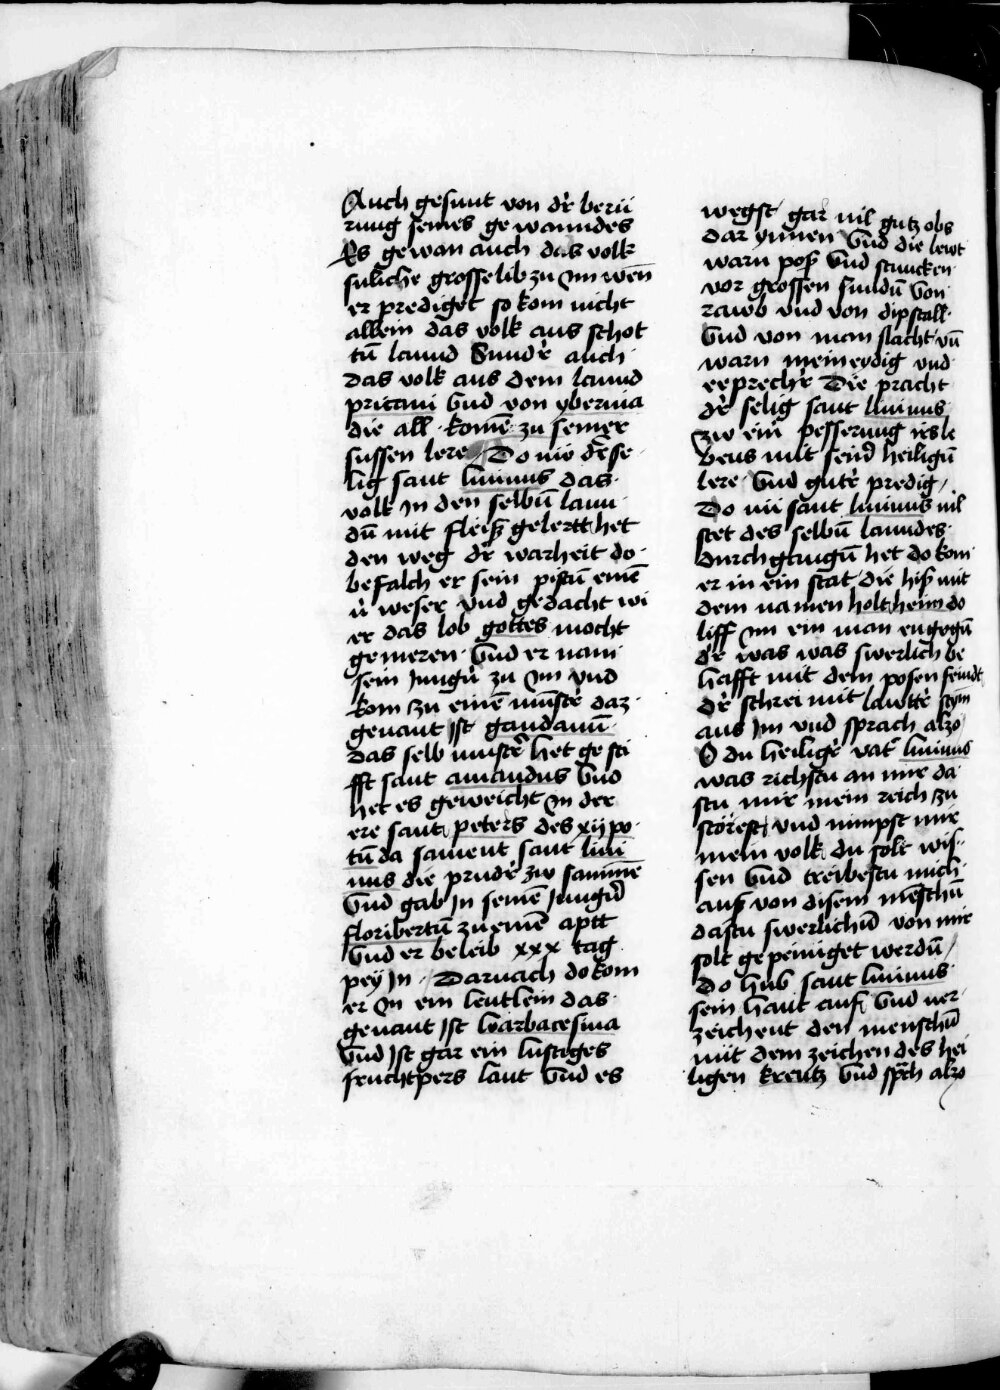 Auch gesunt von dr̄ berü
rung seines ge wanndes
Es gewan auch das volk
sülliche grosse lib zu Im wen̄
er prediget so kom nicht
allein das volk aus schot
tn̄ lannd Sundr̄ auch
das volk aus dem lannd
pritani vnd von ybernia
die all komē zu seiner
süssen lere Do nw dr̄ se
lig sant liuinus das
volk In den selbn̄ lann
dn̄ mit fleiß gelertt het
den weg dr̄ warheit do
befalch er sein pistū einē
n̄ weser vnd gedacht wi
er das lob gottes mocht
gemeren Vnd er nam
sein Jungr̄ zu Im vnd
kom zu einē munstr̄ daz
genant Ist gandauū
das selb munstr̄ het ge sti
fft sant amandus Vnd
het es geweicht In der
ere sant peters des xij po
tn̄ da sament sant liui
nus die prudr̄ zw samme
Vnd gab In seinē Jungn̄
floribertū zu einē aptt
Vnd er beleib xxx tag
pey In Darnach do kom
er In ein leutlein das
genant Ist barbacesina
Vnd Ist gar ein lustiges
fruchtpers lant Vnd es
wegst gar uil gutz obs
dar ynnen Vnd die lewt
warn poß Vnd stuncken
vor grossen sundn̄ Von
rawb vnd von dipstall
Vnd von man slacht vn̄
warn meineydig vnd
eeprechr̄ Die pracht
dr̄ selig sant liuinus
zw ein pesserung irs le
bens mit seinr̄ heilign̄
lere Vnd gutr̄ predig
Do nu sant liuinus uil
stet des selbn̄ lanndes
durchgangn̄ het do kom
er in ein stat die hiß mit
dem namen holtheim do
liff Im ein man engegn̄
dr̄ was was swerlich be
hafft mit dem posen feindt
dr̄ schrei mit lawttr̄ stym̄
aus Im vnd sprach also
O du heiligr̄ vatr̄ liuinus
was richstu an mir da
stu mir mein reich zu
störest vnd nimpst mir
mein volk du solt wis
sen Vnd treibestu mich
auß von disem menschn̄
dastu swerlichn̄ von mir
solt gepeiniget werdn̄
Do hub sant liuinus
sein hant auf Vnd uer
zeichent den menschn̄
mit dem zeichen des hei
ligen kreutz Vnd sp̄ch also